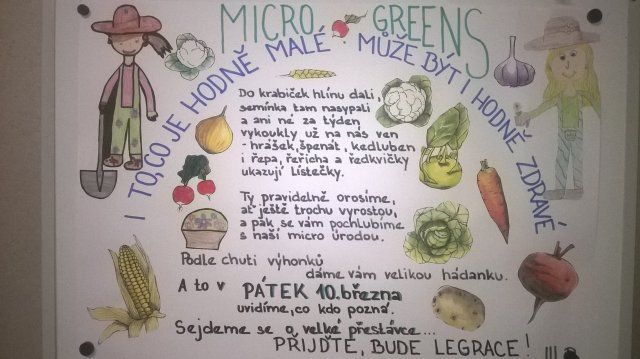 MICRO GREENS
I TO, CO JE HODNĚ MALÉ MŮŽE BÝT I HODNĚ ZDRAVÉ
Do krabiček hlínu dali,
semínka tam nasypali
a ani né za týden
vykoukly už na nás ven
- hrášek, špenát, kedluben
i řepa, řeřicha a ředkvičky
ukazují lístečky.
Ty pravidelně orosíme,
ať ještě trochu vyrostou,
a pak se vám pochlubíme
s naší micro úrodou.
Podle chuti výhonků
dáme vám velikou hádanku.
A to v PÁTEK 10. března
uvidíme, co kdo pozná.
Sejdeme se o velké přestávce...
PŘIJĎTE, BUDE LEGRACE! III.B